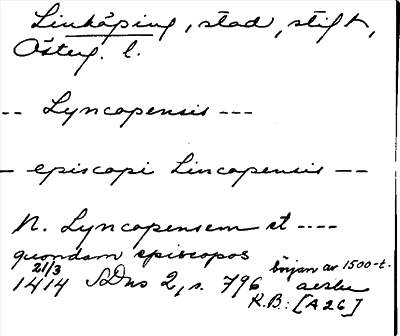 Linköping, stad, stift,
Österg. l.
-- Lyncopensis ---
- episcopi Lincopensis --
N. Lyncopensem et ----
quondam episcopos
21/3 början av 1500-t.
1414 SDns 2, s. 796 avskr
R.B.: [A 26]